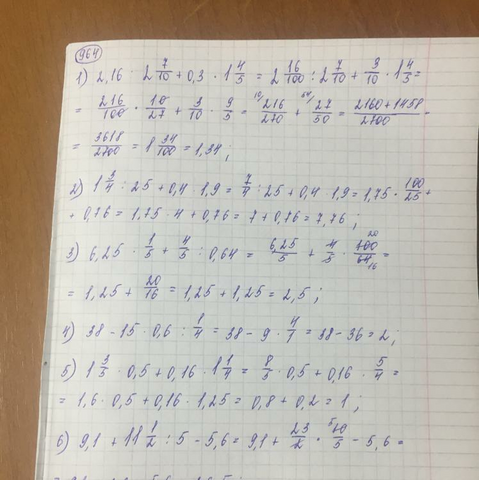 964
1) 2,16 : 2 7/10 + 0,3 · 1 4/5 = 2 16/100 : 2 7/10 + 3/10 · 1 4/5 =
= 216/100 · 10/27 + 3/10 · 9/5 = 10/ 216/270 + 54/ 27/50 = 2160+1458/2700 =
= 3618/2700 = 1 34/100 = 1,34 ;
2) 1 3/4 : 25 + 0,4 · 1,9 = 7/4 : 25 + 0,4 · 1,9 = 1,75 · 100/25 +
+ 0,76 = 1,75 · 4 + 0,76 = 7 + 0,76 = 7,76 ;
3) 6,25 · 1/5 + 4/5 : 0,64 = 6,25/5 + 4/5 · 100/64 20 16 =
= 1,25 + 20/16 = 1,25 + 1,25 = 2,5 ;
4) 38 - 15 · 0,6 : 1/4 = 38 - 9 · 4/1 = 38 - 36 = 2 ;
5) 1 3/5 · 0,5 + 0,16 · 1 1/4 = 8/5 · 0,5 + 0,16 · 5/4 =
= 1,6 · 0,5 + 0,16 · 1,25 = 0,8 + 0,2 = 1 ;
6) 9,1 + 11 1/2 : 5 - 5,6 = 9,1 + 23/2 · 10/5 - 5,6 =